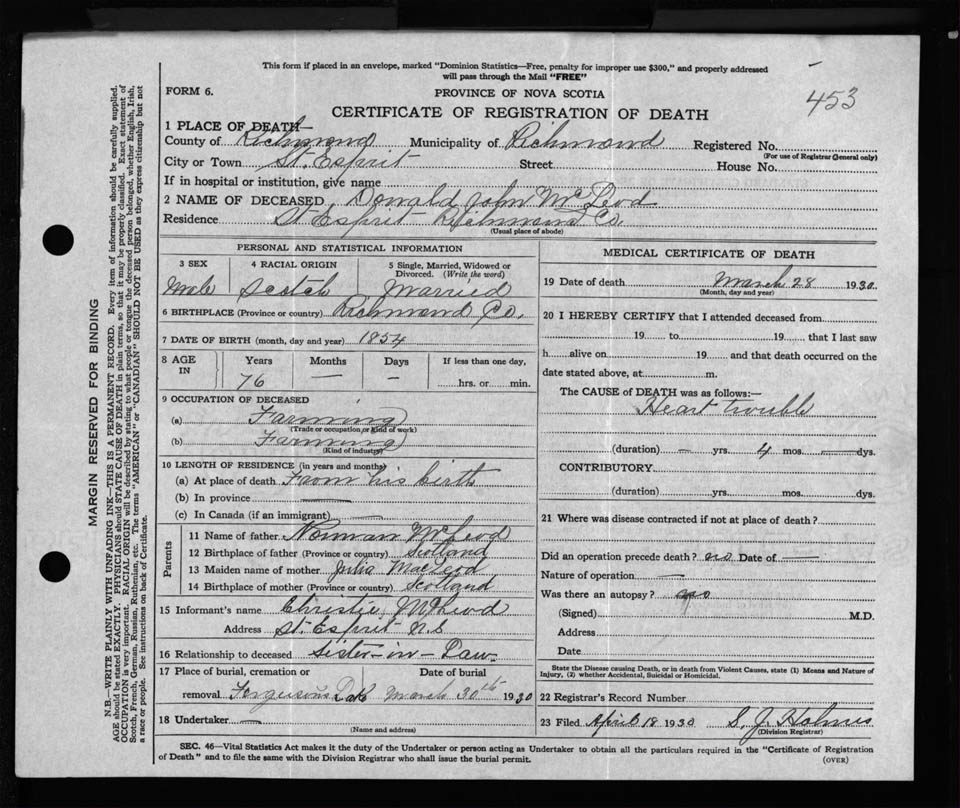 This form if placed in an envelope, marked "Dominion Statistics—Free, penalty for improper use $300," and properly addressed
will pass through the Mail "FREE"
453
FORM 6.
PROVINCE OF NOVA SCOTIA
CERTIFICATE OF REGISTRATION OF DEATH
1 PLACE OF DEATH—
County of Richmond Municipality of Richmond Registered No.
(For use of Registrar General only)
City or Town St. Esprit Street House No.
If in hospital or institution, give name
2 NAME OF DECEASED Donald John McLeod
Residence St Esprit Richmond Co.
(Usual place of abode)
PERSONAL AND STATISTICAL INFORMATION
3 SEX 4 RACIAL ORIGIN 5 Single, Married, Widowed or
Divorced. (Write the word)
Male Scotch Married
6 BIRTHPLACE (Province or country) Richmond Co.
7 DATE OF BIRTH (month, day and year) 1854
8 AGE IN Years Months Days If less than one day,
76 — — hrs. or min.
9 OCCUPATION OF DECEASED
(a) Farming
(Trade or occupation or kind of work)
(b) Farming
(Kind of industry)
10 LENGTH OF RESIDENCE (in years and months)
(a) At place of death From his birth
(b) In province —
(c) In Canada (if an immigrant) —
Parents
11 Name of father Norman McLeod
12 Birthplace of father (Province or country) Scotland
13 Maiden name of mother Julia MacLeod
14 Birthplace of mother (Province or country) Scotland
15 Informant's name Christie McLeod
Address St. Esprit N.S
16 Relationship to deceased Sister-in-Law
17 Place of burial, cremation or Date of burial
removal Fergusons Lake March 30th 1930
18 Undertaker —
(Name and address)
MEDICAL CERTIFICATE OF DEATH
19 Date of death March 28 1930.
(Month, day and year)
20 I HEREBY CERTIFY that I attended deceased from
19 to 19 that I last saw
h alive on 19 and that death occurred on the
date stated above, at m.
The CAUSE of DEATH was as follows:—
Heart trouble
(duration) — yrs. 4 mos. — dys.
CONTRIBUTORY
(duration) yrs. mos. dys.
21 Where was disease contracted if not at place of death?
Did an operation precede death? no Date of —
Nature of operation —
Was there an autopsy? no
(Signed) M.D.
Address
Date
State the Disease causing Death, or in death from Violent Causes, state (1) Means and Nature of
Injury, (2) whether Accidental, Suicidal or Homicidal.
22 Registrar's Record Number
23 Filed April 18 1930 S. J. Holmes
(Division Registrar)
SEC. 46—Vital Statistics Act makes it the duty of the Undertaker or person acting as Undertaker to obtain all the particulars required in the "Certificate of Registration
of Death" and to file the same with the Division Registrar who shall issue the burial permit.
(OVER)
MARGIN RESERVED FOR BINDING
N.B.—WRITE PLAINLY WITH UNFADING INK—THIS IS A PERMANENT RECORD. Every item of information should be carefully supplied.
AGE should be stated EXACTLY. PHYSICIANS should STATE CAUSE OF DEATH in plain terms, so that it may be properly classified. Exact statement of
OCCUPATION is very important. RACIAL ORIGIN will be described by stating to what people or tongue the deceased person belonged, whether English, Irish,
Scotch, French, German, Russian, Ruthenian, etc. The terms "AMERICAN" or "CANADIAN" SHOULD NOT BE USED as they express citizenship but not
a race or people. See instructions on back of Certificate.